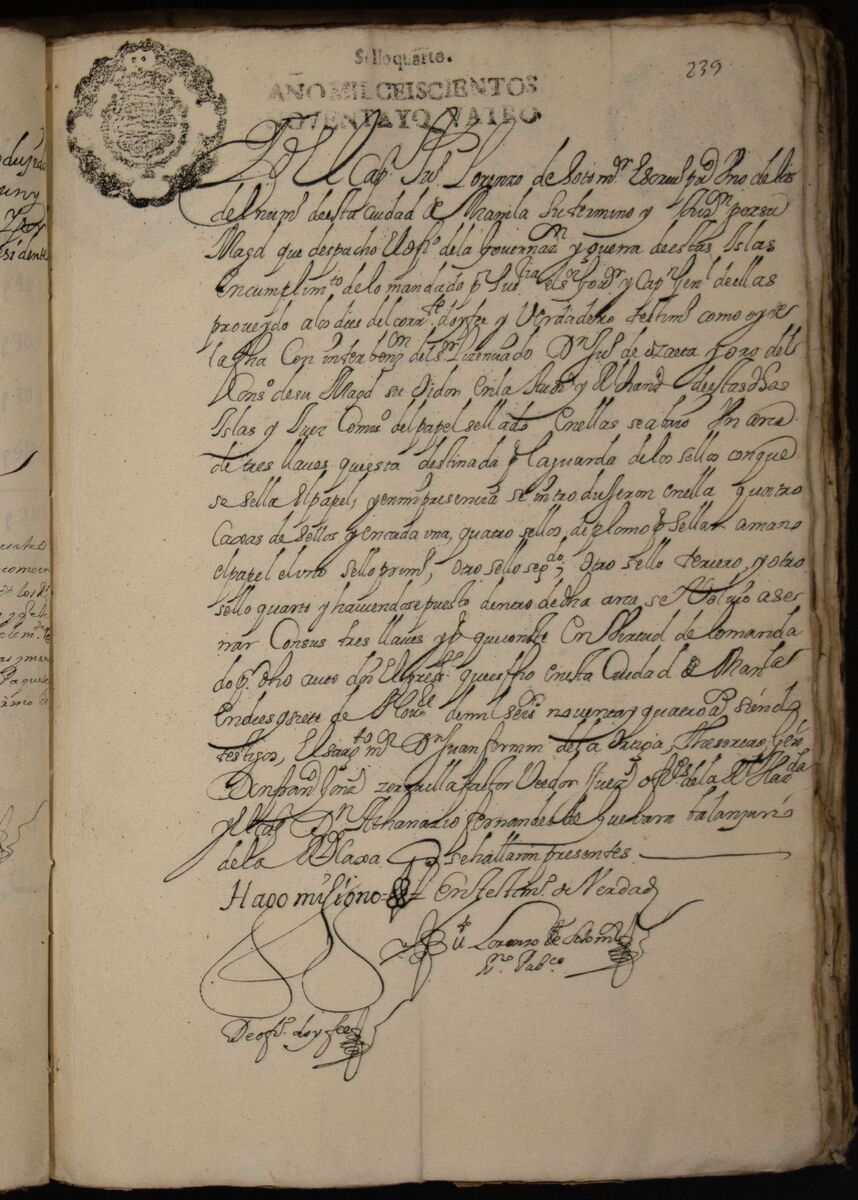 Sello quarto.
239
AÑO MIL CEISCIENTOS
NOVENTA YQVATRO
Yo El Capn Jul Lorenzo de Sotomr Escrivo pubco Uno de los
del numo de esta ciudad de Manila su termino y Jurizon por su
Magd que despacho el ofio de la governazn y guerra de estas Islas
En cumplimto de lo mandado pr Su sria el sr Govor y Capn Genl de ellas
proveydo a los dies del corrte doy fee y Verdadero testimo como oy
la fha Con interbenzn del sr Lizenciado Dn Jul de
Conso de su Magd su oidor en la Audia y Rl chanzia destas dhas
Islas y Juez Comiso del papel sellado En ellas se abrio Un arca
de tres llaves questa destinada pa la guarda de los sellos con que
se sella El papel, y en mi presencia se introdujeron en ella quatro
Caxas de sellos y en cada una, quatro sellos, de plomo pa sellar a mano
el papel el uno sello primo, otro sello segdo, otro sello tercero, y otro
sello quarto y haviendose puesto dentro de dha arca, se volvio a ser
rar Con sus tres llaves y pa que conste En Virtud de lo manda
do pr dho auto doy El preste que es fho en esta Ciudad de Manla
En dies y siete de Nove de mil seiss noventa y quatro as siendo
testigos, El sargto mr Dn Juan fermin de la Thesorero, Gen
zorrilla factor Veedor Juez ofl de la Rl Hazda
y El Cap Dn Athanacio fernandes de Guebara balanzario
de la Rl Caxa qe se hallaron presentes
Hago mi signo En testimo de Verdad
Lorenzo de Sotomr
Eno Pubco
De ofio doy fee